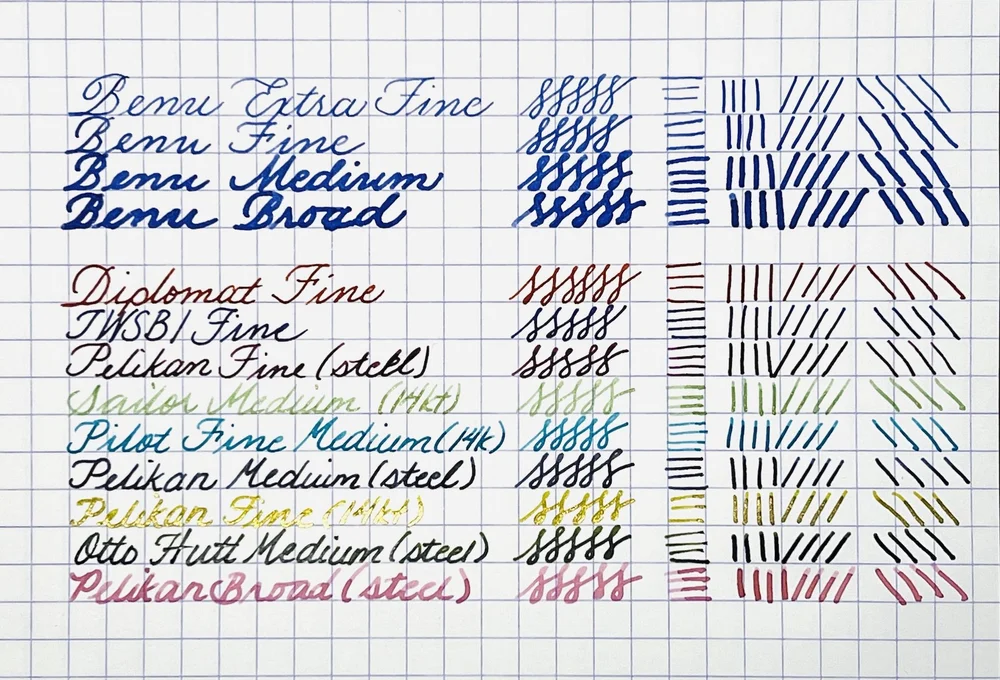 Benu Extra Fine
Benu Fine
Benu Medium
Benu Broad
Diplomat Fine
TWSBI Fine
Pelikan Fine (steel)
Sailor Medium (14kt)
Pilot Fine Medium (14k)
Pelikan Medium (steel)
Pelikan Fine (14kt)
Otto Hutt Medium (steel)
Pelikan Broad (steel)